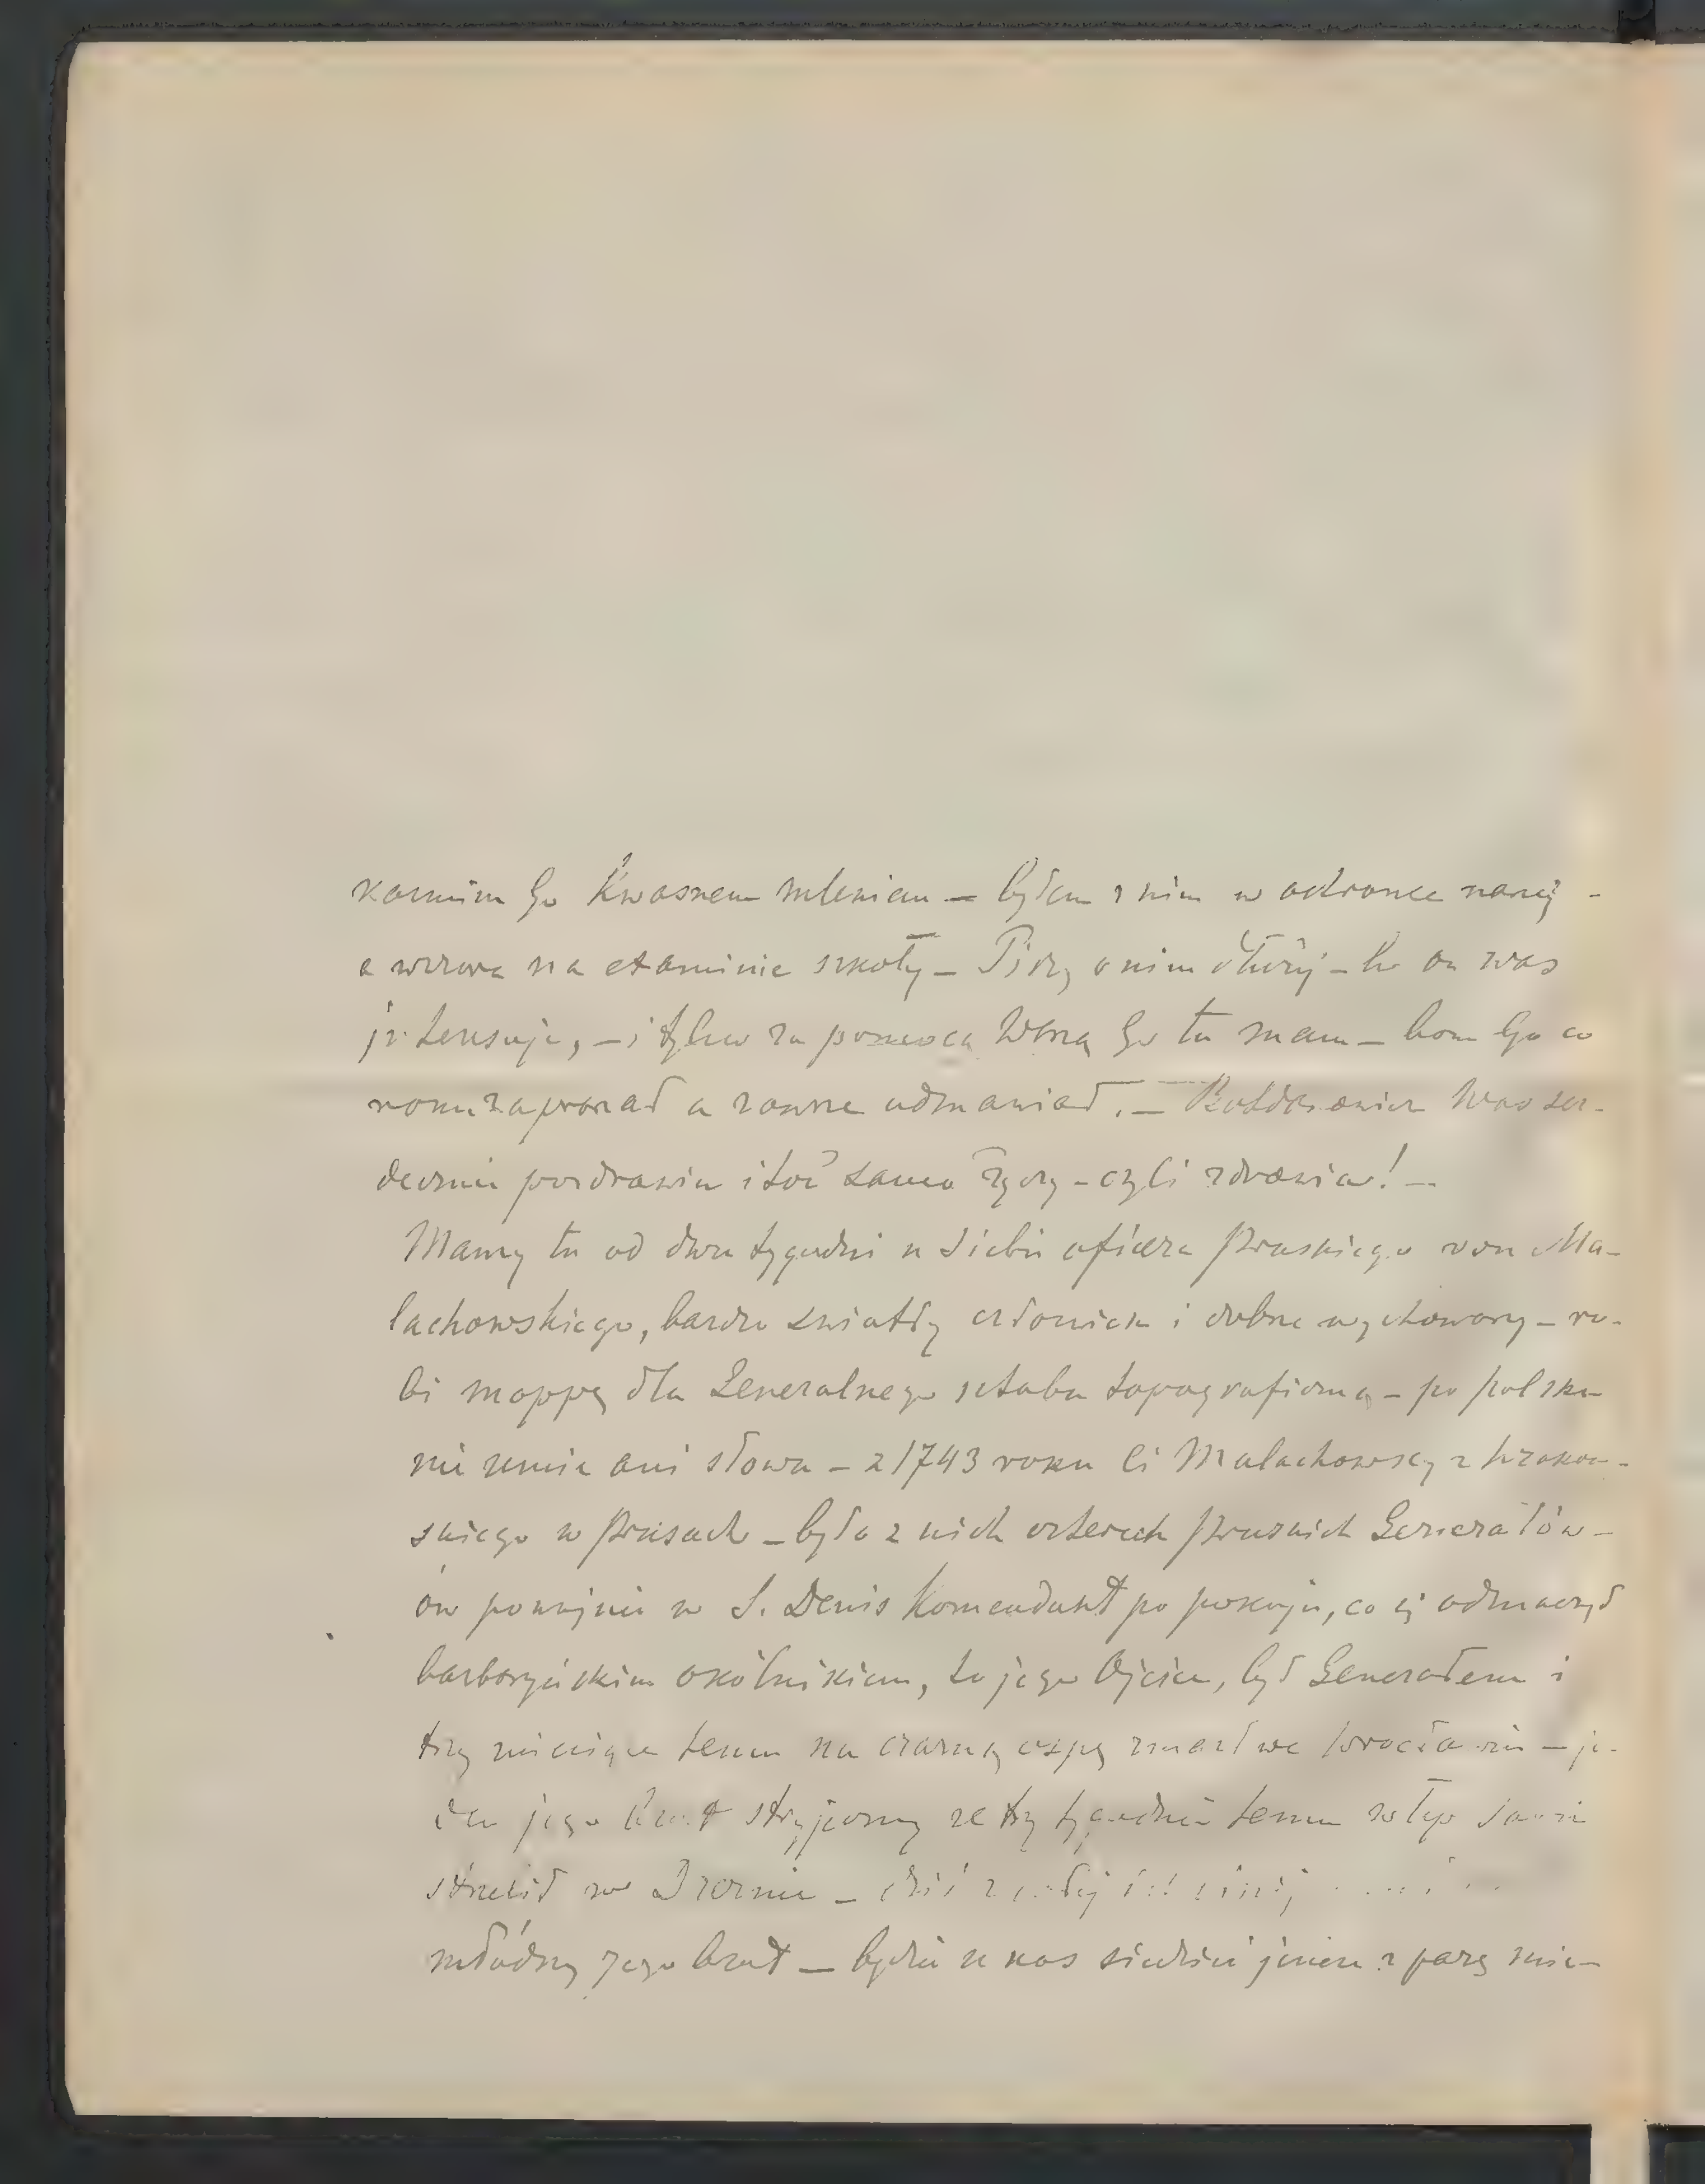 karmim Go Kwaśnem mlekiem — byłem z nim w ochronce naszéj -
a wczora na examinie szkoły — Piszę o nim dłużéj — bo on was
interesuje, — i tylko za pomocą Waszą Go tu mam — bom Go co
roku zapraszał a zawsze odmawiał. — Was ser-
decznie pozdrawia i toż samo życzy — czyli zdrowia! —
Mamy tu od dwu tygodni u siebie oficera Pruskiego von Ma-
lachowskiego, bardzo światły człowiek i dobrze wychowany — ro-
bi mappę dla Generalnego sztabu topograficzną — po polsku
nie umie ani słowa — z 1743 roku ci Malachowscy z Krakow-
skiego w Prusach — było z nich czterech Pruskich Generałów —
ów po wojnie w S. Denis Komendant po pokoju, co się odznaczył
barbarzyńskim okólnikiem, to jego Ojciec, był Generałem i
trzy miesiące temu na czarną ospę zmarł we Wrocławiu — je-
den jego brat stryjeczny ze trzy tygodnie temu w łeb sobie
strzelił we — dziś
młódszy jego brat — będzie u nas siedzieć jeszcze z parę mie-